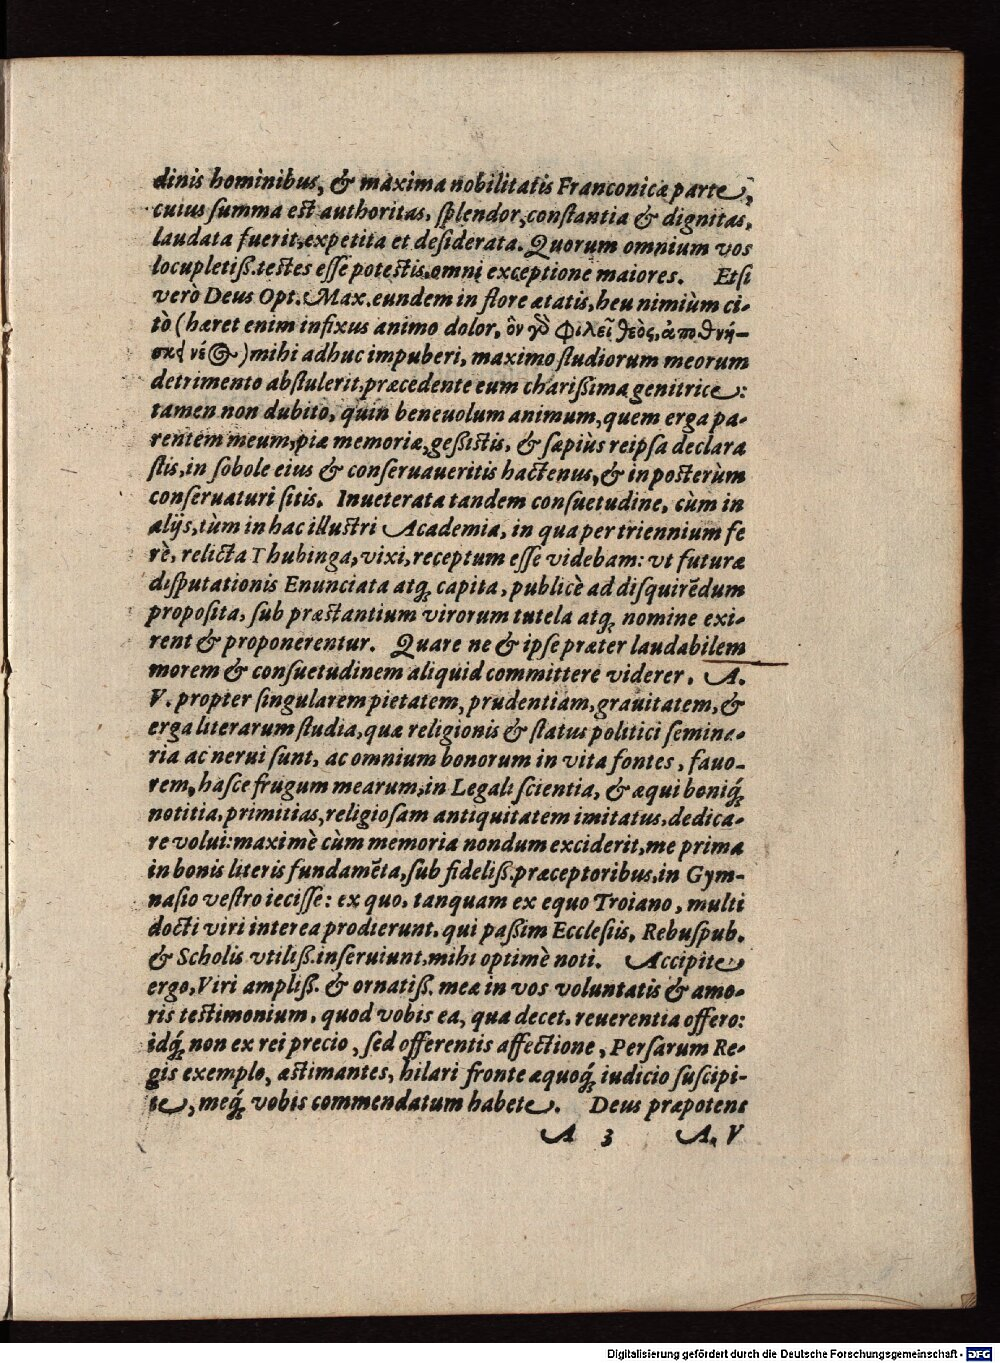 dinis hominibus, & maxima nobilitatis Franconicæ parte,
cuius summa est authoritas, splendor, constantia & dignitas,
laudata fuerit, expetita et desiderata. Quorum omnium vos
locupletiß. testes esse potestis, omni exceptione maiores. Etsi
verò Deus Opt. Max. eundem in flore ætatis, heu nimiùm ci-
tò (hæret enim infixus animo dolor, ὃν γὸ φιλεῖ θεὸς, ἀποθνή-
σκει νέ㏂) mihi adhuc impuberi, maximo studiorum meorum
detrimento abstulerit, præcedente eum charißima genitrice:
tamen non dubito, quin beneuolum animum, quem erga pa-
rentem meum, piæ memoriæ, geßistis, & sæpiùs reipsa declara
stis, in sobole eius & conseruaueritis hactenus, & in posterùm
conseruaturi sitis. Inueterata tandem consuetudine, cùm in
alijs, tùm in hac illustri Academia, in qua per triennium fe
rè, relicta Thubinga, vixi, receptum esse videbam: vt futuræ
disputationis Enunciata atq́; capita, publicè ad disquirēdum
proposita, sub præstantium virorum tutela atq́; nomine exi-
rent & proponerentur. Quare ne & ipse præter laudabilem
morem & consuetudinem aliquid committere viderer, A.
V. propter singularem pietatem, prudentiam, grauitatem, &
erga literarum studia, quæ religionis & status politici semina-
ria ac nerui sunt, ac omnium bonorum in vita fontes, fauo-
rem, hasce frugum mearum, in Legali scientia, & æqui boniq́;
notitia, primitias, religiosam antiquitatem imitatus, dedica-
re volui: maximè cùm memoria nondum exciderit, me prima
in bonis literis fundamēta, sub fideliß. præceptoribus, in Gym-
nasio vestro iecisse: ex quo, tanquam ex equo Troiano, multi
docti viri interea prodierunt, qui paßim Ecclesiis, Rebuspub.
& Scholis vtiliß. inseruiunt, mihi optimè noti. Accipite
ergo, Viri ampliß. & ornatiß. meæ in vos voluntatis & amo-
ris testimonium, quod vobis ea, qua decet, reuerentia offero:
idq́; non ex rei precio, sed offerentis affectione, Persarum Re-
gis exemplo, æstimantes, hilari fronte æquoq́; iudicio suscipi-
te, meq́; vobis commendatum habete. Deus præpotens
A 3 A. V
Digitalisierung gefördert durch die Deutsche Forschungsgemeinschaft - DFG